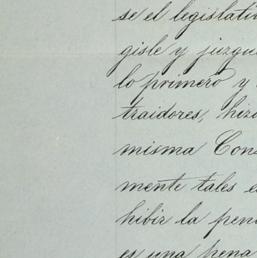 se el legislativ
gisle y juzgu
lo primero y
traidores, hizo
misma Cons
mente tales e
hibir la pen
es una pena